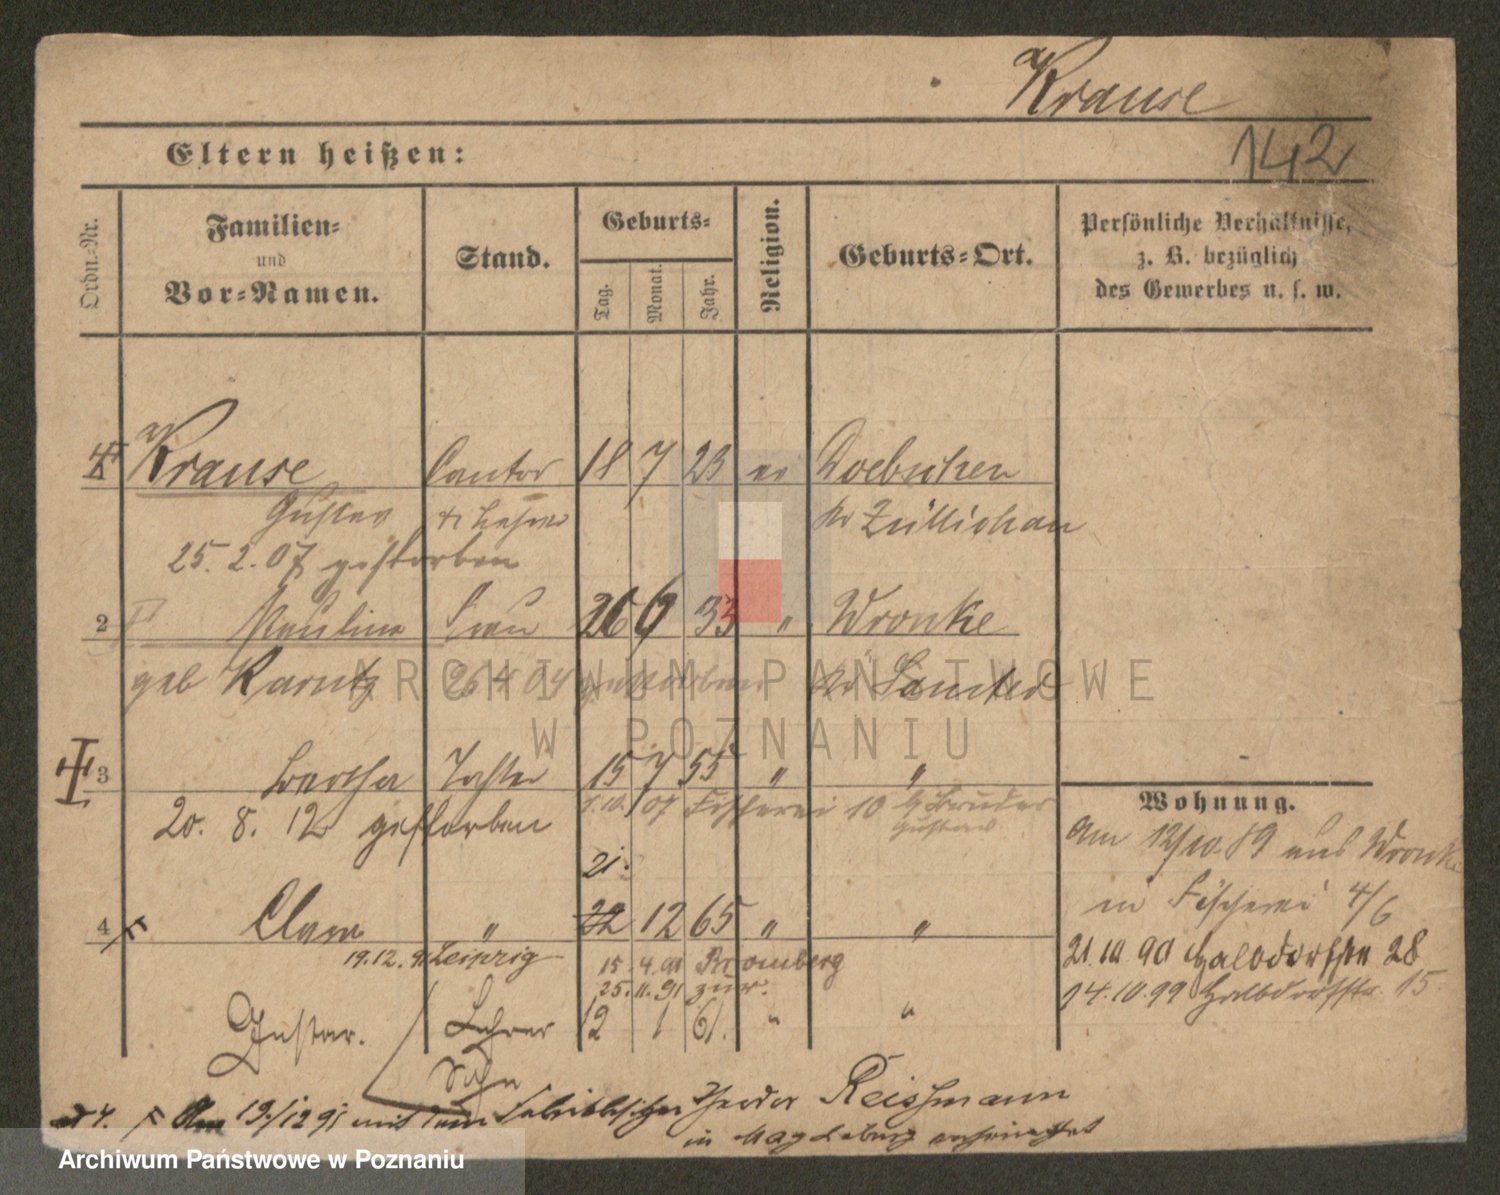 Krause
142
Eltern heißen:
Ordn.-Nr.
Familien-
und
Vor-Namen.
Stand.
Geburts-
Tag.
Monat.
Jahr.
Religion.
Geburts-Ort.
Persönliche Verhältnisse,
z. B. bezüglich
des Gewerbes u. s. w.
Krause Cantor 18 7 23 ev Doebschen
Gustav & Lehrer Kr Züllichau
25. 2. 07 gestorben
2 Pauline Frau 26 6 33 " Wronke
geb 26 4 04 gestorben Kr Samter
3 Bertha Tochter 15 7 55 " "
07 Fischerei 10 b/ Bruder
Gustav
20. 8. 12 gestorben
21.
4 Clara " 22 12 65 " "
19.12.91 Leipzig 15. 4. 91 Bromberg
25. 11. 91 zur.
Gustav. Lehrer 12 1 61. " "
Sohn
ad 4. Am 19./12 91 mit dem Fabrikbesitzer Theodor Reissmann
in Magdeburg verheirathet
Wohnung.
Am 12/10. 89 aus Wronke
in Fischerei 4/6
21.10 90 Halbdorfstr 28
14.10.99 Halbdorfstr. 15.
ARCHIWUM PAŃSTWOWE
W POZNANIU
Archiwum Państwowe w Poznaniu